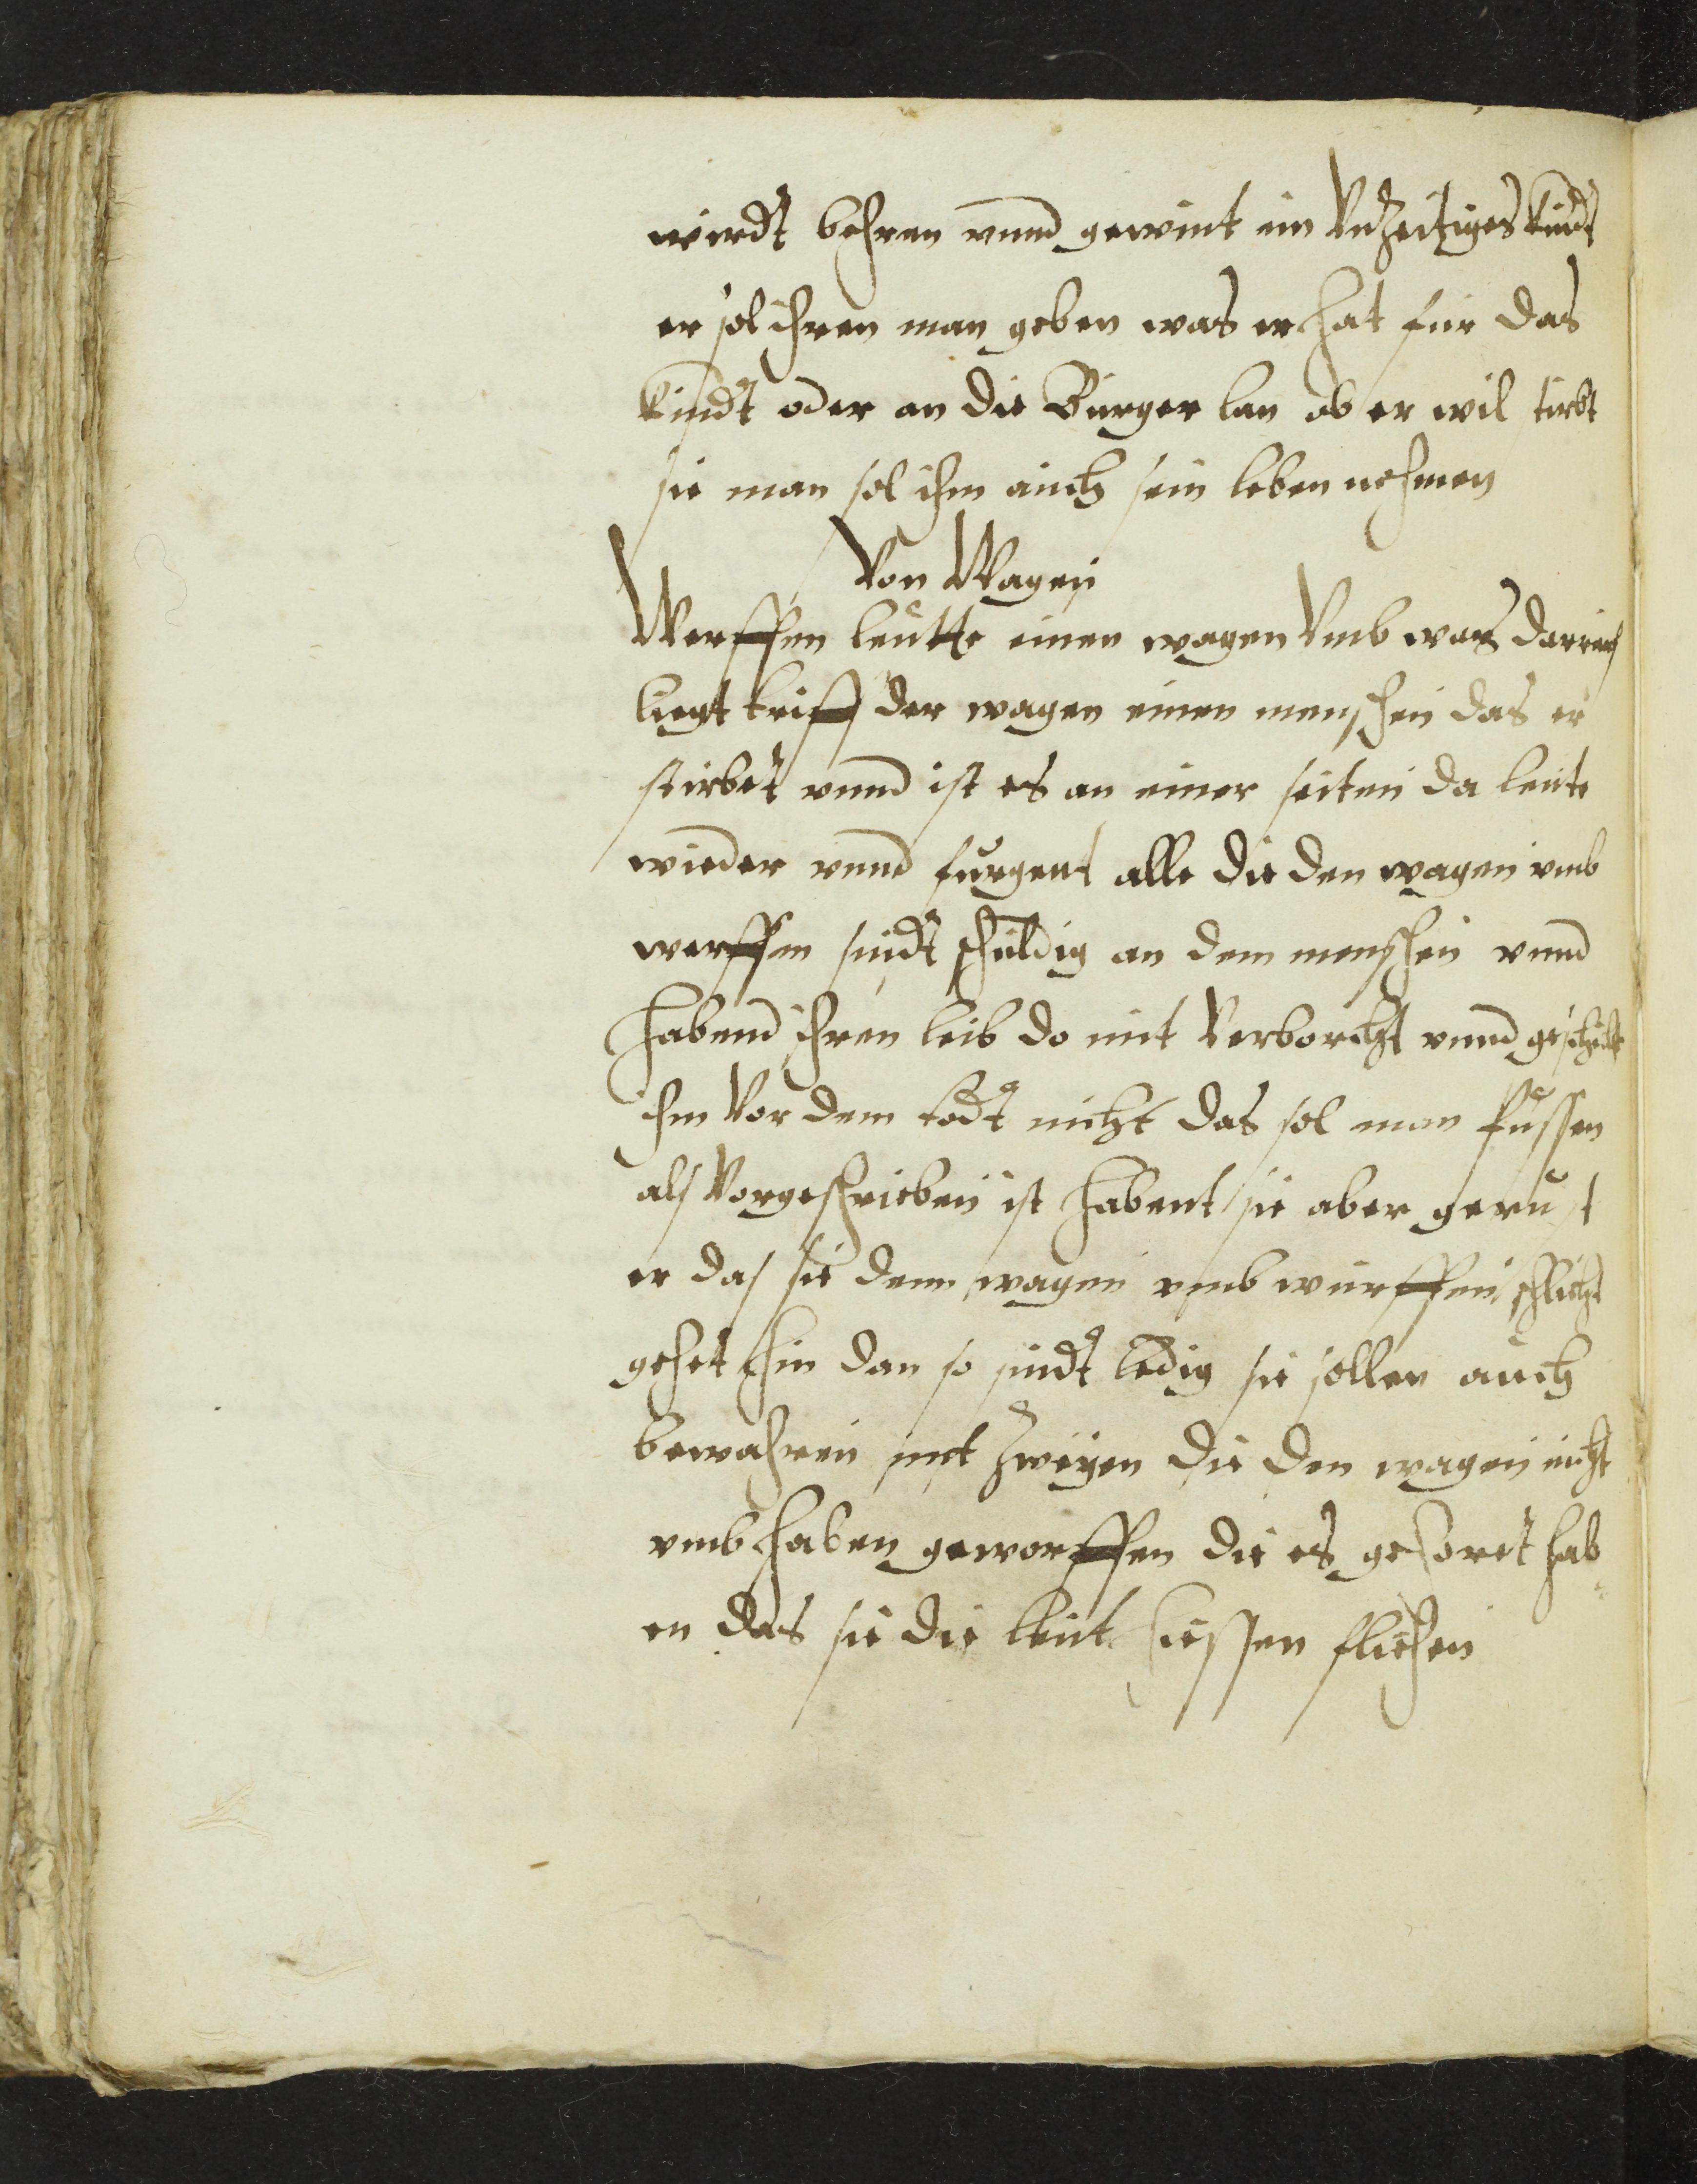 wirdt behren vnnd gewint ein Vnzeitiges kindt
er sol ihren man geben was er hat fur das
kindt oder an die Burger lan ob er wil stirbt
sie man sol ihm auch sein leben nehmen
Von Wagen
Werffen leutte einen wagen Vmb was darein
liegt triff der wagen einen menschen das er
stirbet vnnd ist es an einer seiten da leute
wieder vnnd furgent alle die den wagen vmb
werffen sindt schuldig an dem menschen vnnd
habend ihren leib do mit Verborcht vnnd geschicht
ihm Vor dem todt nicht das sol man bussen
als Vorgeschrieben ist habent sie aber geruft
er das sie denn wagen vmb wurffen schlicht
gehet hin dan so sindt ledig sie sollen auch
bewahren mit zweyen die den wagen nicht
vmb haben geworffen die es gehoret hab
en das sie die leut hiessen fliehen